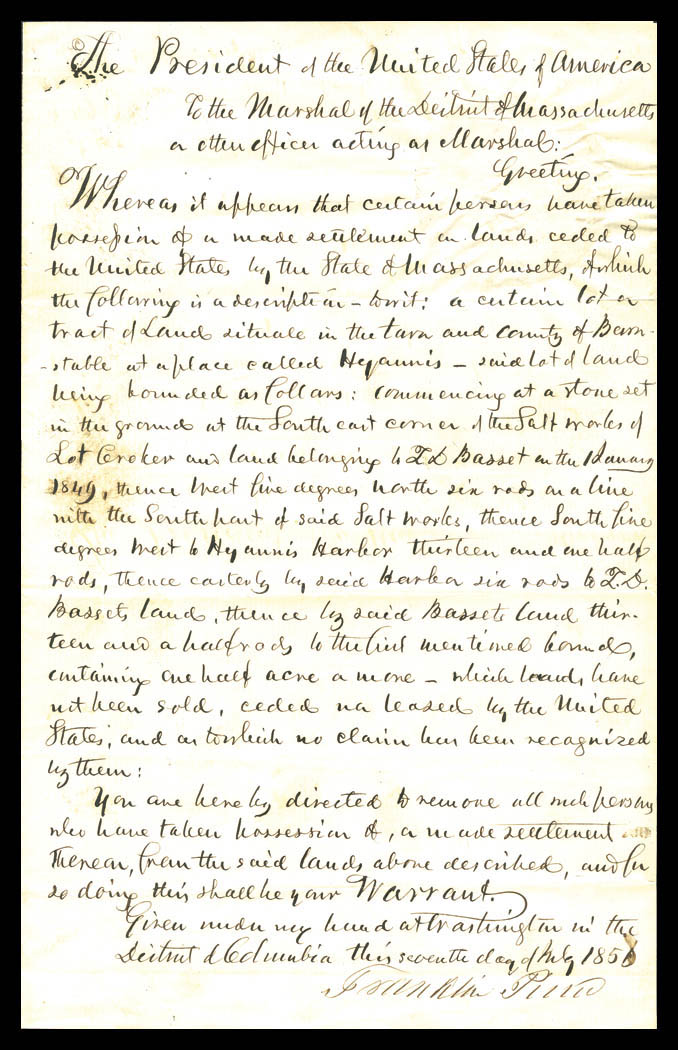 The President of the United States of America
To the Marshal of the District of Massachusetts
or other officer acting as Marshal:
Greeting.
Whereas it appears that certain persons have taken
possession of or made settlement on lands ceded to
the United States by the State of Massachusetts, of which
the following is a description - to wit: a certain lot or
tract of Land situate in the town and county of Barn-
-stable at a place called Hyannis - said lot of land
being bounded as follows: commencing at a stone set
in the ground at the South east corner of the Salt works of
Lot Croker and land belonging to T.D Basset on the 1 January
1849, thence West five degrees north six rods on a line
with the South part of said Salt works, thence South five
degrees West to Hyannis Harbor thirteen and one half
rods, thence easterly by said Harbor six rods to T.D.
Bassets land, thence by said Bassets land thir-
teen and a half rods to the first mentioned bound,
containing one half acre or more - which lands have
not been sold, ceded nor leased by the United
States, and as to which no claim has been recognized
by them:
You are hereby directed to remove all such persons
who have taken possession of, or made settlement
thereon, from the said lands above described, and for
so doing this shall be your Warrant.
Given under my hand at Washington in the
District of Columbia this seventh day of July
Franklin Pierce